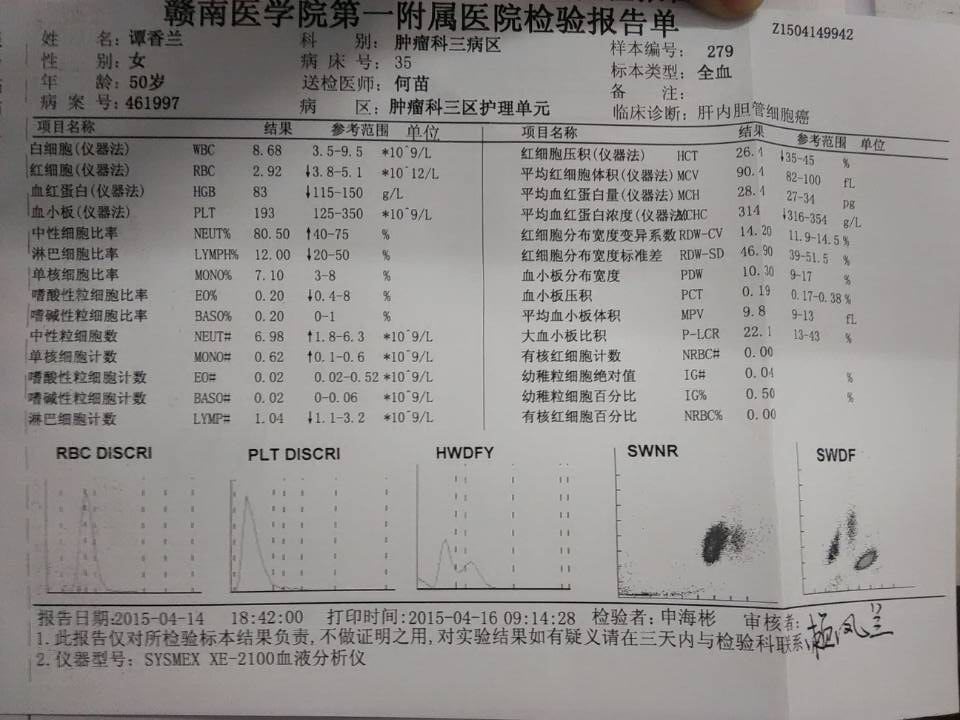 赣南医学院第一附属医院检验报告单
Z1504149942
姓 名: 谭香兰 科 别: 肿瘤科三病区 样本编号: 279
性 别: 女 病 床 号: 35 标本类型: 全血
年 龄: 50岁 送检医师: 何苗 备 注:
病 案 号: 461997 病 区: 肿瘤科三区护理单元 临床诊断: 肝内胆管细胞癌
项目名称 结果 参考范围 单位 项目名称 结果 参考范围 单位
白细胞(仪器法) WBC 8.68 3.5-9.5 *10^9/L 红细胞压积(仪器法) HCT 26.4 ↓35-45 %
红细胞(仪器法) RBC 2.92 ↓3.8-5.1 *10^12/L 平均红细胞体积(仪器法) MCV 90.4 82-100 fL
血红蛋白(仪器法) HGB 83 ↓115-150 g/L 平均血红蛋白量(仪器法) MCH 28.4 27-34 pg
血小板(仪器法) PLT 193 125-350 *10^9/L 平均血红蛋白浓度(仪器法 MCHC 314 ↓316-354 g/L
中性细胞比率 NEUT% 80.50 ↑40-75 % 红细胞分布宽度变异系数 RDW-CV 14.20 11.9-14.5 %
淋巴细胞比率 LYMPH% 12.00 ↓20-50 % 红细胞分布宽度标准差 RDW-SD 46.90 39-51.5 %
单核细胞比率 MONO% 7.10 3-8 % 血小板分布宽度 PDW 10.30 9-17 %
嗜酸性粒细胞比率 EO% 0.20 ↓0.4-8 % 血小板压积 PCT 0.19 0.17-0.38 %
嗜碱性粒细胞比率 BASO% 0.20 0-1 % 平均血小板体积 MPV 9.8 9-13 fL
中性粒细胞数 NEUT# 6.98 ↑1.8-6.3 *10^9/L 大血小板比积 P-LCR 22.1 13-43 %
单核细胞计数 MONO# 0.62 ↑0.1-0.6 *10^9/L 有核红细胞计数 NRBC# 0.00
嗜酸性粒细胞计数 EO# 0.02 0.02-0.52 *10^9/L 幼稚粒细胞绝对值 IG# 0.04 %
嗜碱性粒细胞计数 BASO# 0.02 0-0.06 *10^9/L 幼稚粒细胞百分比 IG% 0.50 %
淋巴细胞计数 LYMP# 1.04 ↓1.1-3.2 *10^9/L 有核红细胞百分比 NRBC% 0.00
RBC DISCRI PLT DISCRI HWDFY SWNR SWDF
报告日期:2015-04-14 18:42:00 打印时间:2015-04-16 09:14:28 检验者: 申海彬 审核者:
1. 此报告仅对所检验标本结果负责,不做证明之用,对实验结果如有疑义请在三天内与检验科联系
2. 仪器型号: SYSMEX XE-2100血液分析仪